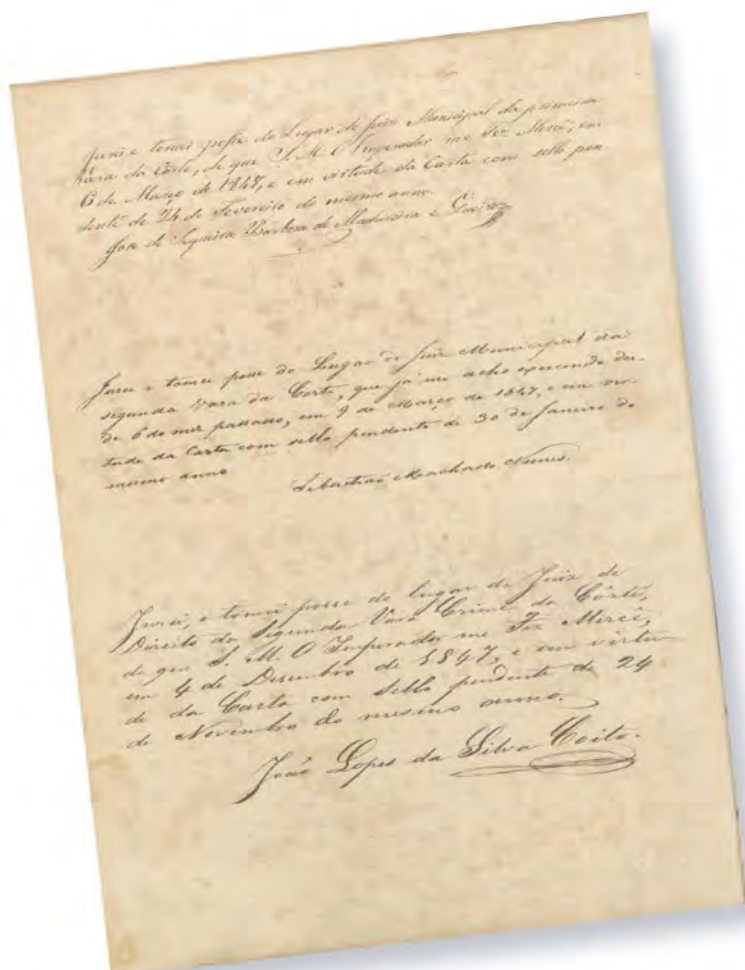 Jurei e tomei posse do Lugar de Juiz Municipal da primeira
Vara da Côrte, de que S. M. O Imperador me Fez Mercê, em
6 de Março de 1847, e em virtude da Carta com sello pen
dente de 24 de Fevereiro do mesmo anno.
José de Siqueira Barbosa de Madureira e Queiroz
Jurei e tomei posse do Lugar de Juiz Municipal da
segunda Vara da Corte, que já me acho exercendo des-
de 6 do mez passado, em 9 de Março de 1847, e em vir-
tude da Carta com sello pendente de 30 de Janeiro do
mesmo anno
Sebastião Machado Nunes.
Jurei, e tomei posse do lugar de Juiz de
Direito da Segunda Vara Crime da Côrte,
de que S. M. O Imperador me Fez Mercê,
em 4 de Desembro de 1847, e em virtu
de da Carta com sello pendente de 24
de Novembro do mesmo anno.
João Lopes da Silva Coito.